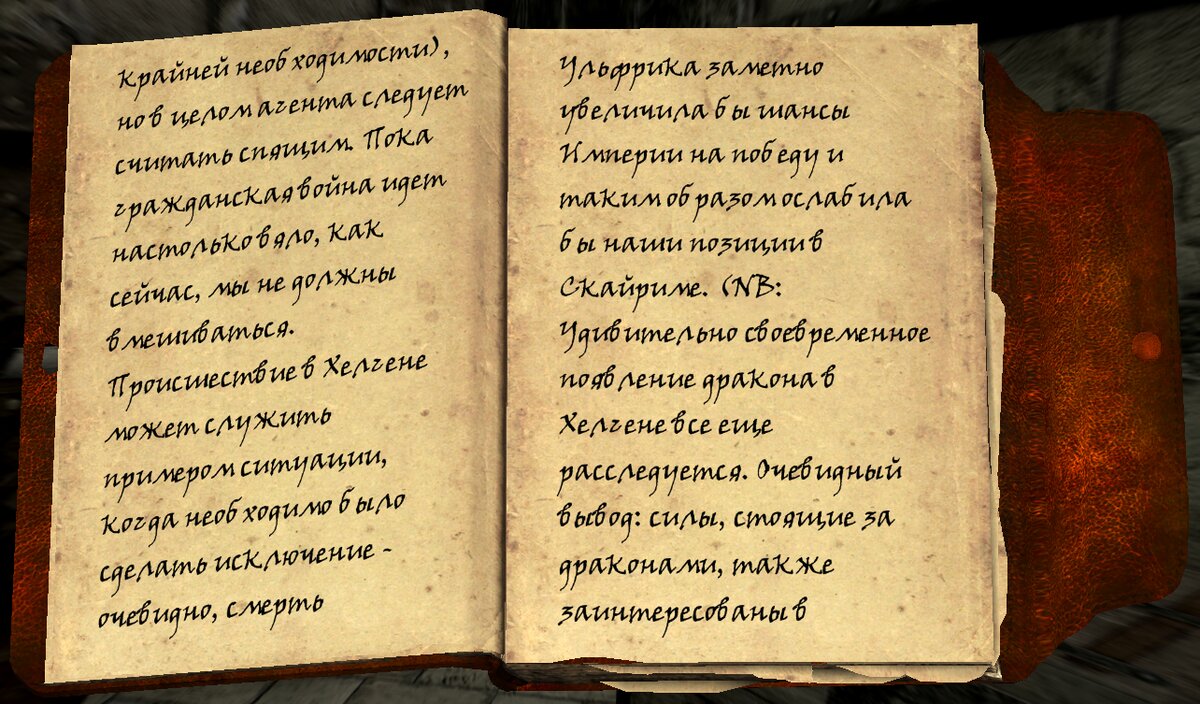 крайней необходимости),
но в целом агента следует
считать спящим. Пока
гражданская война идет
настолько вяло, как
сейчас, мы не должны
вмешиваться.
Происшествие в Хелгене
может служить
примером ситуации,
когда необходимо было
сделать исключение -
очевидно, смерть
Ульфрика заметно
увеличила бы шансы
Империи на победу и
таким образом ослабила
бы наши позиции в
Скайриме. (NB:
Удивительно своевременное
появление дракона в
Хелгене все еще
расследуется. Очевидный
вывод: силы, стоящие за
драконами, также
заинтересованы в